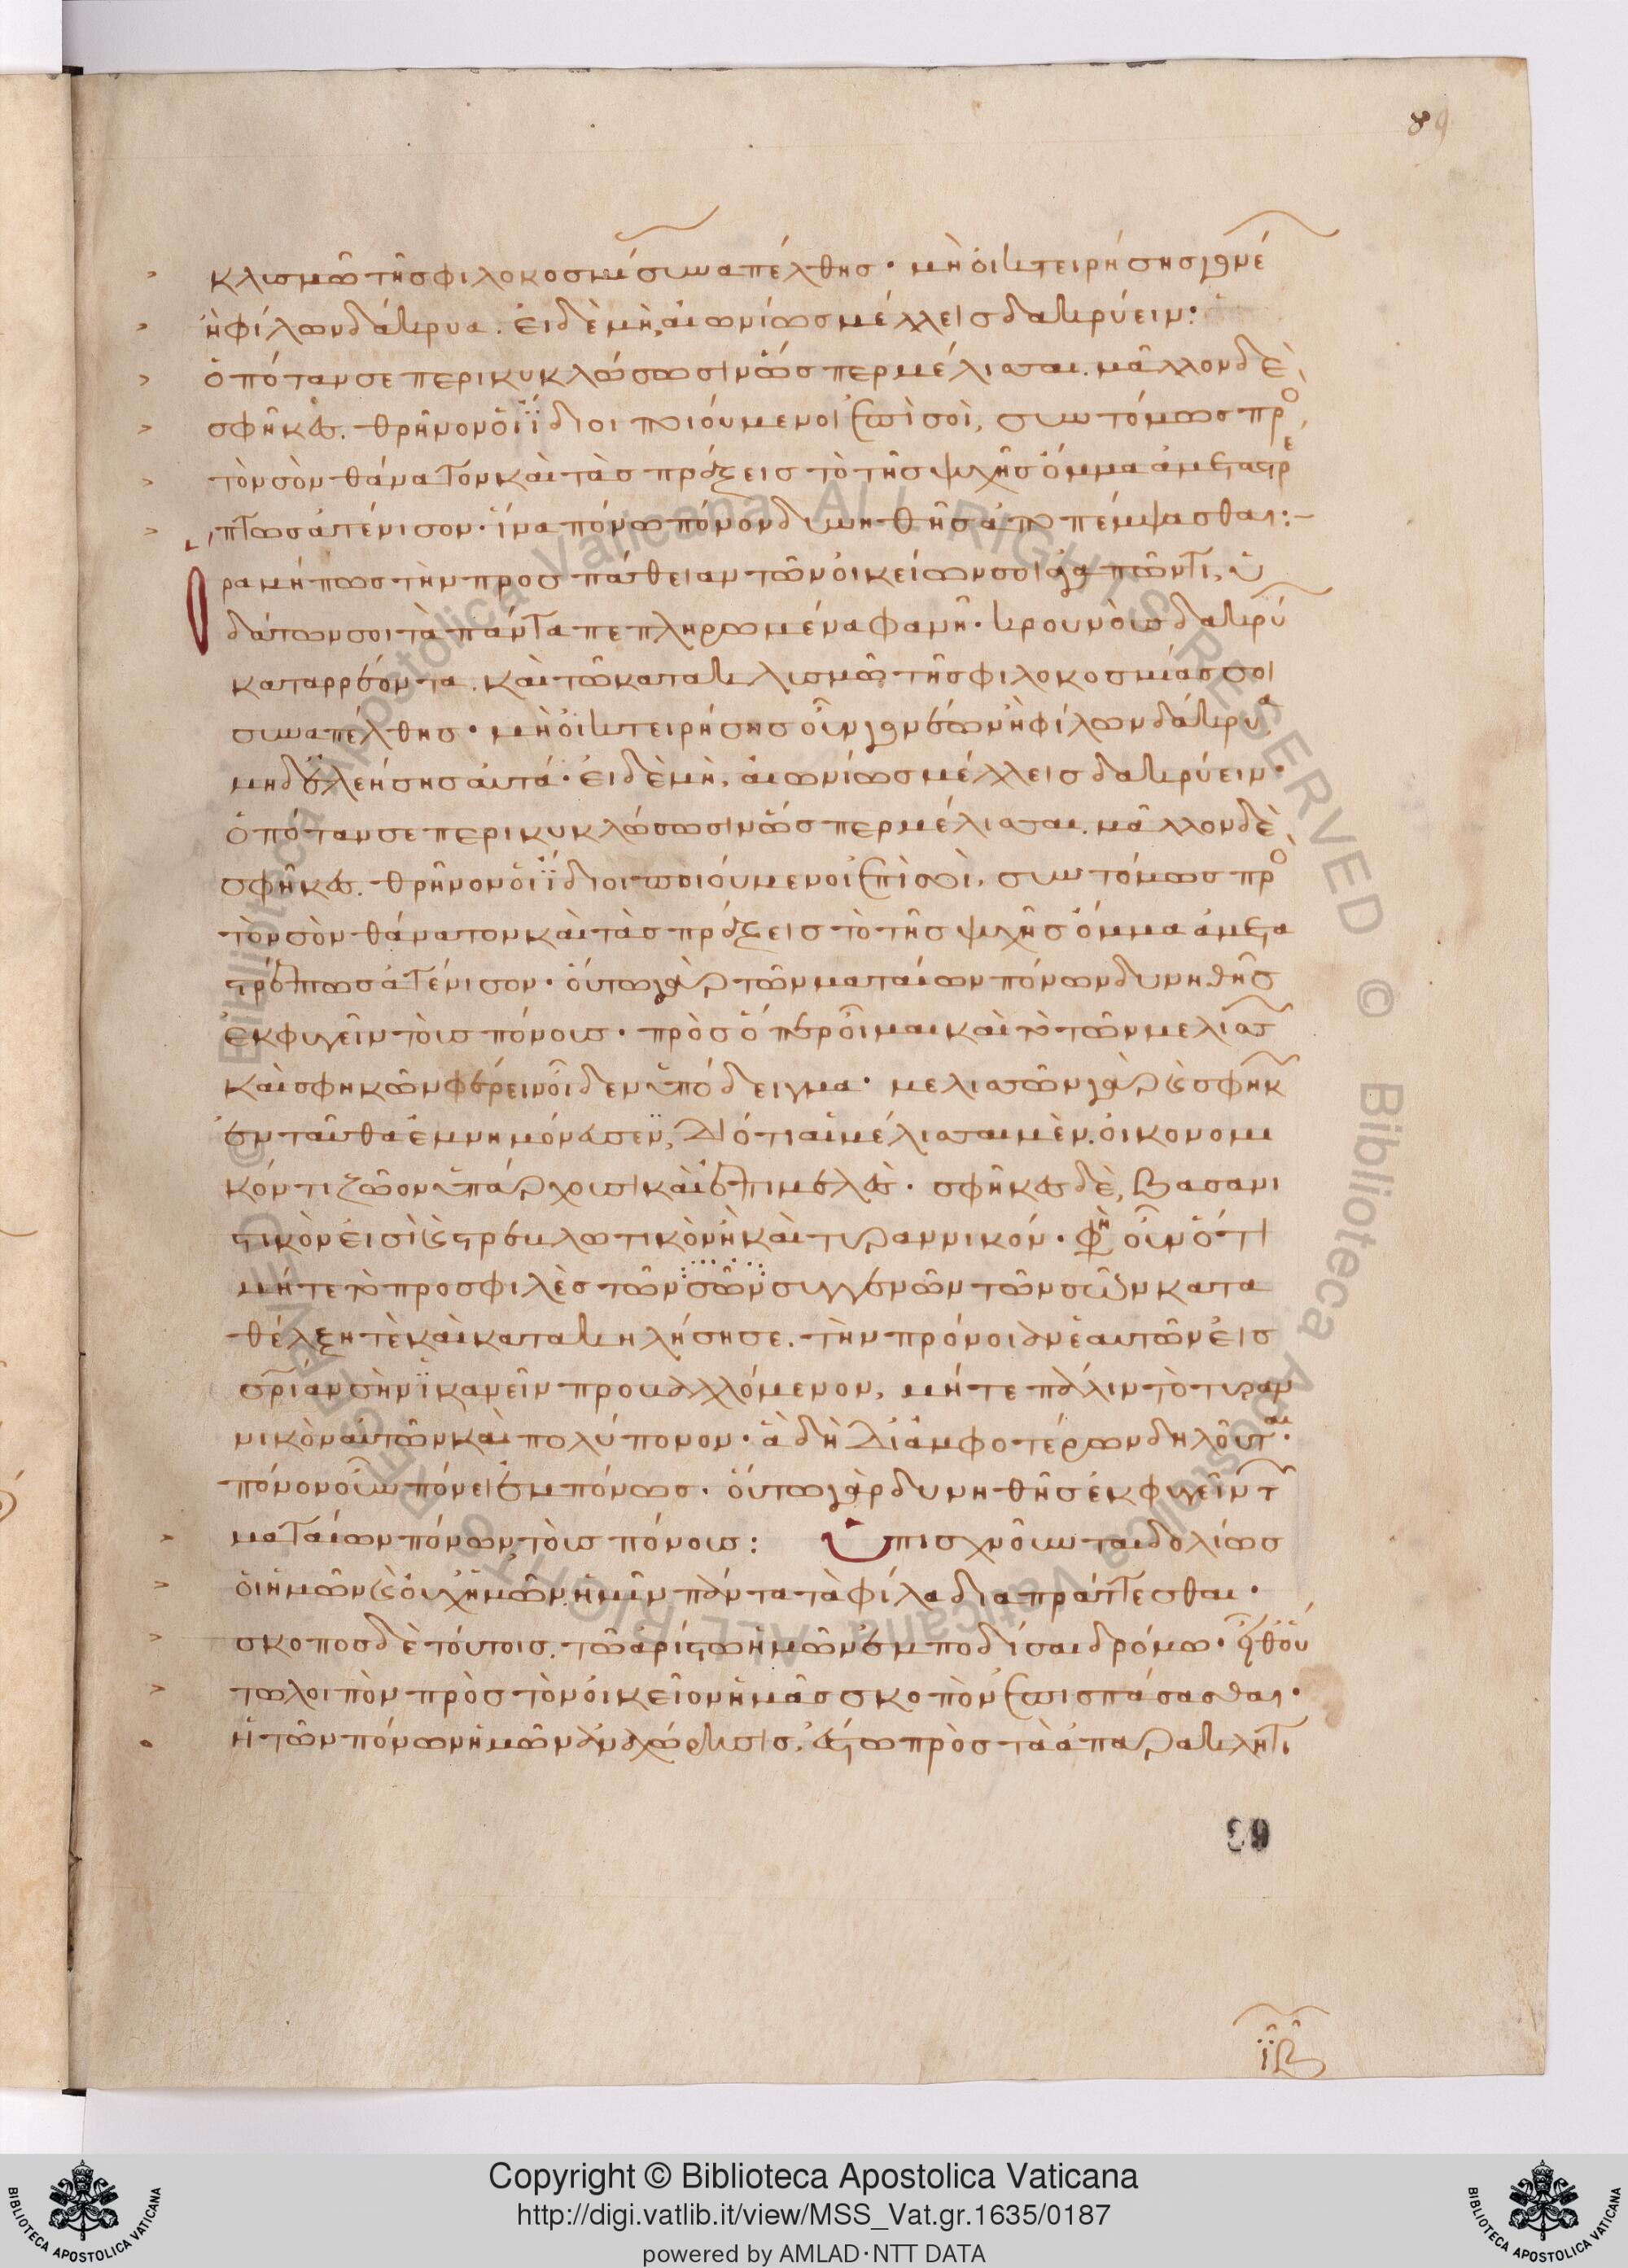 89
κλυσμῶ τῆς φιλοκοσμί συναπέλθης· μὴ οἰκτειρήσης γονέ
ἢ φίλων δάκρυα. εἰ δὲ μὴ, αἰωνίως μέλλεις δακρύειν:
ὁπόταν σε περικυκλώσωσιν ὥσπερ μέλισσαι. μᾶλλον δὲ
σφῆκες. θρῆνον οἱ ἴδιοι ποιούμενοι ἐπὶ σοὶ, συντόμως πρὸ
τὸν σὸν θάνατον καὶ τὰς πράξεις τὸ τῆς ψυχῆς ὄμμα ἀμεταστρέ
πτως ἀτένισον· ἵνα πόνω πόνον δυνηθῆς ἀποπέμψασθαι:–
ὅρα μήπως τὴν προσπάθειαν τῶν οἰκείων σοι ἀγαπῶντι, ὑ
δάτων σοι τὰ πάντα πεπληρωμένα φανῆ· κρουνοῖς δακρύ
καταρρέοντα. καὶ τῶ κατακλυσμῶ τῆς φιλοκοσμίας σοι
συναπέλθης· μὴ οἰκτειρήσης οὖν γονέων ἢ φίλων δάκρυα
μηδ' ἐλεήσης αὐτά· εἰ δὲ μὴ, αἰωνίως μέλλεις δακρύειν·
ὁπόταν σε περικυκλώσωσιν ὥσπερ μέλισσαι. μᾶλλον δὲ
σφῆκες. θρῆνον οἱ ἴδιοι ποιούμενοι ἐπὶ σοὶ, συντόμως πρὸ
τὸν σὸν θάνατον καὶ τὰς πράξεις τὸ τῆς ψυχῆς ὄμμα ἀμετα
στρέπτως ἀτένισον· οὕτω γὰρ τῶν ματαίων πόνων δυνηθῆς
ἐκφυγεῖν τοῖς πόνοις· πρὸς ὅπερ οἶμαι καὶ τὸ τῶν μελισσ
καὶ σφηκῶν φέρειν οἶδεν ὑπόδειγμα· μελισσῶν γὰρ καὶ σφηκ
ἐνταῦθα ἐμνημόνευσεν, διότι αἱ μέλισσαι μὲν. οἰκονομι
κόν τι ζῶον ὑπάρχουσι καὶ ἐπιμελές· σφῆκες δὲ, βασανι
στικὸν εἰσὶ καὶ στρεβλωτικὸν ἢ καὶ τυραννικόν· φη οὖν ὅτι
μήτε τὸ προσφιλὲς τῶν σῶν συγγενῶν τῶν σῶν κατα
θέλξη τὲ καὶ κατακηλήση σε. τὴν πρόνοιαν ἑαυτῶν εἰς
σρίαν σὴν ἱκανεῖν προβαλλόμενον, μήτε πάλιν τὸ τυραν
νικὸν αὐτῶν καὶ πολύπονον· ἃ δὴ δι' ἀμφοτέρων δηλοῦται·
πόνον οὖν πόνει ἐμπόνως· οὕτω γὰρ δυνηθῆς ἐκφυγεῖν τ
ματαίων πόνων τοῖς πόνοις: Ὑπισχνοῦνται δολίως
οἱ ἡμῶν καὶ οὐχ ἡμῶν, ἡμῖν πάντα τὰ φίλα διαπράττεσθαι·
σκοπος δὲ τούτοις. τῶ ἀρίστω ἡμῶν ἐμποδίσαι δρόμω· εἶθ' οὕ
τω λοιπὸν πρὸς τὸν οἰκεῖον ἡμᾶς σκοπὸν ἐπισπάσασθαι·
ἡ τῶν πόνων ἡμῶν ἀναχώρησις, ἔστω πρὸς τὰ ἀπαρακλητ
63
ιβ
© Biblioteca Apostolica Vaticana ALL RIGHTS RESERVED
Copyright © Biblioteca Apostolica Vaticana
http://digi.vatlib.it/view/MSS_Vat.gr.1635/0187
powered by AMLAD·NTT DATA
BIBLIOTECA APOSTOLICA VATICANA
BIBLIOTECA APOSTOLICA VATICANA